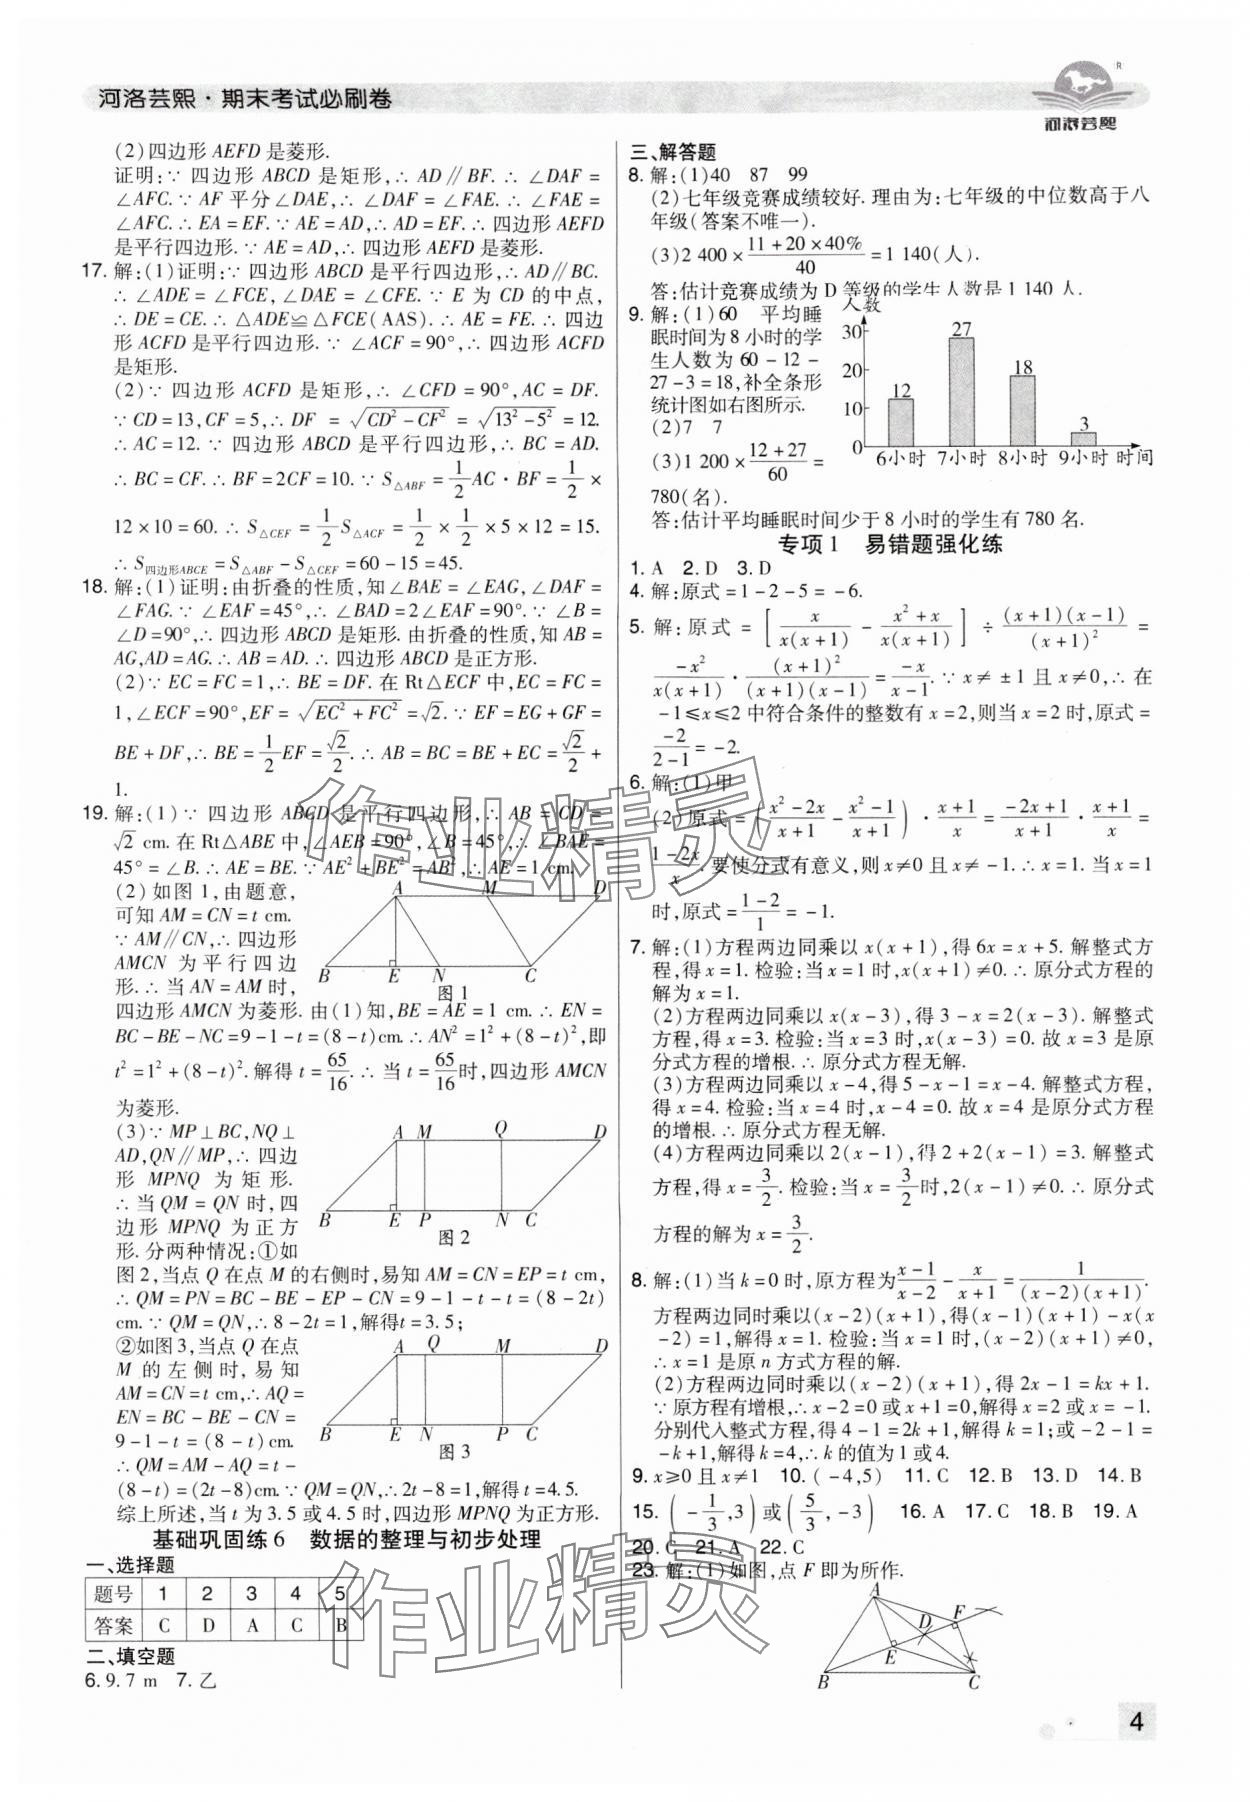 河洛芸熙·期末考试必刷卷
R
河洛芸熙
(2)四边形 AEFD 是菱形.
证明:∵ 四边形 ABCD 是矩形,∴ AD∥BF.∴ ∠DAF =
∠AFC.∵ AF 平分∠DAE,∴ ∠DAF = ∠FAE.∴ ∠FAE =
∠AFC.∴ EA = EF.∵ AE = AD,∴ AD = EF.∴ 四边形 AEFD
是平行四边形.∵ AE = AD,∴ 四边形 AEFD 是菱形.
17. 解:(1)证明:∵ 四边形 ABCD 是平行四边形,∴ AD∥BC.
∴ ∠ADE = ∠FCE,∠DAE = ∠CFE.∵ E 为 CD 的中点,
∴ DE = CE.∴ △ADE≌△FCE(AAS).∴ AE = FE.∴ 四边
形 ACFD 是平行四边形.∵ ∠ACF = 90°,∴ 四边形 ACFD
是矩形.
(2)∵ 四边形 ACFD 是矩形,∴ ∠CFD = 90°,AC = DF.
∵ CD = 13,CF = 5,∴ DF = √(CD² - CF²) = √(13² - 5²) = 12.
∴ AC = 12.∵ 四边形 ABCD 是平行四边形,∴ BC = AD.
∴ BC = CF.∴ BF = 2CF = 10.∵ S△ABF = 1/2 AC · BF = 1/2 ×
12 × 10 = 60.∴ S△CEF = 1/2 S△ACF = 1/2 × 1/2 × 5 × 12 = 15.
∴ S四边形ABCE = S△ABF - S△CEF = 60 - 15 = 45.
18. 解:(1)证明:由折叠的性质,知∠BAE = ∠EAG,∠DAF =
∠FAG.∵ ∠EAF = 45°,∴ ∠BAD = 2∠EAF = 90°.∵ ∠B =
∠D = 90°,∴ 四边形 ABCD 是矩形. 由折叠的性质,知 AB =
AG,AD = AG.∴ AB = AD.∴ 四边形 ABCD 是正方形.
(2)∵ EC = FC = 1,∴ BE = DF. 在 Rt△ECF 中,EC = FC =
1,∠ECF = 90°,EF = √(EC² + FC²) = √2.∵ EF = EG + GF =
BE + DF,∴ BE = 1/2 EF = √2/2.∴ AB = BC = BE + EC = √2/2 +
1.
19. 解:(1)∵ 四边形 ABCD 是平行四边形,∴ AB = CD =
√2 cm. 在 Rt△ABE 中,∠AEB = 90°,∠B = 45°,∴ ∠BAE =
45° = ∠B.∴ AE = BE.∵ AE² + BE² = AB²,∴ AE = 1 cm.
(2)如图 1,由题意,
可知 AM = CN = t cm.
∵ AM∥CN,∴ 四边形
AMCN 为平行四边
形.∴ 当 AN = AM 时,
A M D
B E N C
图 1
四边形 AMCN 为菱形. 由(1)知,BE = AE = 1 cm.∴ EN =
BC - BE - NC = 9 - 1 - t = (8 - t)cm.∴ AN² = 1² + (8 - t)²,即
t² = 1² + (8 - t)². 解得 t = 65/16.∴ 当 t = 65/16 时,四边形 AMCN
为菱形.
(3)∵ MP⊥BC,NQ⊥
AD,QN∥MP,∴ 四边
形 MPNQ 为矩形.
∴ 当 QM = QN 时,四
边形 MPNQ 为正方
形. 分两种情况:①如
A M Q D
B E P N C
图 2
图 2,当点 Q 在点 M 的右侧时,易知 AM = CN = EP = t cm,
∴ QM = PN = BC - BE - EP - CN = 9 - 1 - t - t = (8 - 2t)
cm.∵ QM = QN,∴ 8 - 2t = 1,解得t = 3.5;
②如图 3,当点 Q 在点
M 的左侧时,易知
AM = CN = t cm,∴ AQ =
EN = BC - BE - CN =
9 - 1 - t = (8 - t)cm.
∴ QM = AM - AQ = t -
A Q M D
B E N P C
图 3
(8 - t) = (2t - 8)cm.∵ QM = QN,∴ 2t - 8 = 1,解得 t = 4.5.
综上所述,当 t 为 3.5 或 4.5 时,四边形 MPNQ 为正方形.
基础巩固练 6 数据的整理与初步处理
一、选择题
题号 1 2 3 4 5
答案 C D A C B
二、填空题
6. 9.7 m 7. 乙
三、解答题
8. 解:(1)40 87 99
(2)七年级竞赛成绩较好. 理由为:七年级的中位数高于八
年级(答案不唯一).
(3)2 400 × (11 + 20 × 40%)/40 = 1 140(人).
答:估计竞赛成绩为 D 等级的学生人数是 1 140 人.
9. 解:(1)60 平均睡
眠时间为 8 小时的学
生人数为 60 - 12 -
27 - 3 = 18,补全条形
统计图如右图所示.
(2)7 7
(3)1 200 × (12 + 27)/60 =
780(名).
人数
30
20
10
0
12
27
18
3
6小时 7小时 8小时 9小时 时间
答:估计平均睡眠时间少于 8 小时的学生有 780 名.
专项 1 易错题强化练
1. A 2. D 3. D
4. 解:原式 = 1 - 2 - 5 = - 6.
5. 解:原式 = [x/(x(x + 1)) - (x² + x)/(x(x + 1))] ÷ ((x + 1)(x - 1))/(x + 1)² =
-x²/(x(x + 1)) · (x + 1)²/((x + 1)(x - 1)) = -x/(x - 1).∵ x ≠ ±1 且 x≠0,∴ 在
-1≤x≤2 中符合条件的整数有 x = 2,则当 x = 2 时,原式 =
-2/(2 - 1) = -2.
6. 解:(1)甲
(2)原式 = ((x² - 2x)/(x + 1) - (x² - 1)/(x + 1)) · (x + 1)/x = (-2x + 1)/(x + 1) · (x + 1)/x =
(1 - 2x)/x. 要使分式有意义,则 x≠0 且 x≠ - 1.∴ x = 1. 当 x = 1
时,原式 = (1 - 2)/1 = - 1.
7. 解:(1)方程两边同乘以 x(x + 1),得 6x = x + 5. 解整式方
程,得 x = 1. 检验:当 x = 1 时,x(x + 1)≠0.∴ 原分式方程的
解为 x = 1.
(2)方程两边同乘以 x(x - 3),得 3 - x = 2(x - 3). 解整式
方程,得 x = 3. 检验:当 x = 3 时,x(x - 3) = 0. 故 x = 3 是原
分式方程的增根.∴ 原分式方程无解.
(3)方程两边同乘以 x - 4,得 5 - x - 1 = x - 4. 解整式方程,
得 x = 4. 检验:当 x = 4 时,x - 4 = 0. 故 x = 4 是原分式方程
的增根.∴ 原分式方程无解.
(4)方程两边同乘以 2(x - 1),得 2 + 2(x - 1) = 3. 解整式
方程,得 x = 3/2. 检验:当 x = 3/2 时,2(x - 1)≠0.∴ 原分式
方程的解为 x = 3/2.
8. 解:(1)当 k = 0 时,原方程为 (x - 1)/(x - 2) - x/(x + 1) = 1/((x - 2)(x + 1)).
方程两边同时乘以(x - 2)(x + 1),得(x - 1)(x + 1) - x(x
- 2) = 1,解得 x = 1. 检验:当 x = 1 时,(x - 2)(x + 1)≠0,
∴ x = 1 是原 n 方式方程的解.
(2)方程两边同时乘以(x - 2)(x + 1),得 2x - 1 = kx + 1.
∵ 原方程有增根,∴ x - 2 = 0 或 x + 1 = 0,解得 x = 2 或 x = - 1.
分别代入整式方程,得 4 - 1 = 2k + 1,解得 k = 1;或 - 2 - 1 =
- k + 1,解得 k = 4,∴ k 的值为 1 或 4.
9. x≥0 且 x≠1 10. ( - 4,5) 11. C 12. B 13. D 14. B
15. (-1/3,3) 或 (5/3, -3) 16. A 17. C 18. B 19. A
20. C 21. A 22. C
23. 解:(1)如图,点 F 即为所作.
A
D
F
E
B C
作业精灵
作业精灵
4